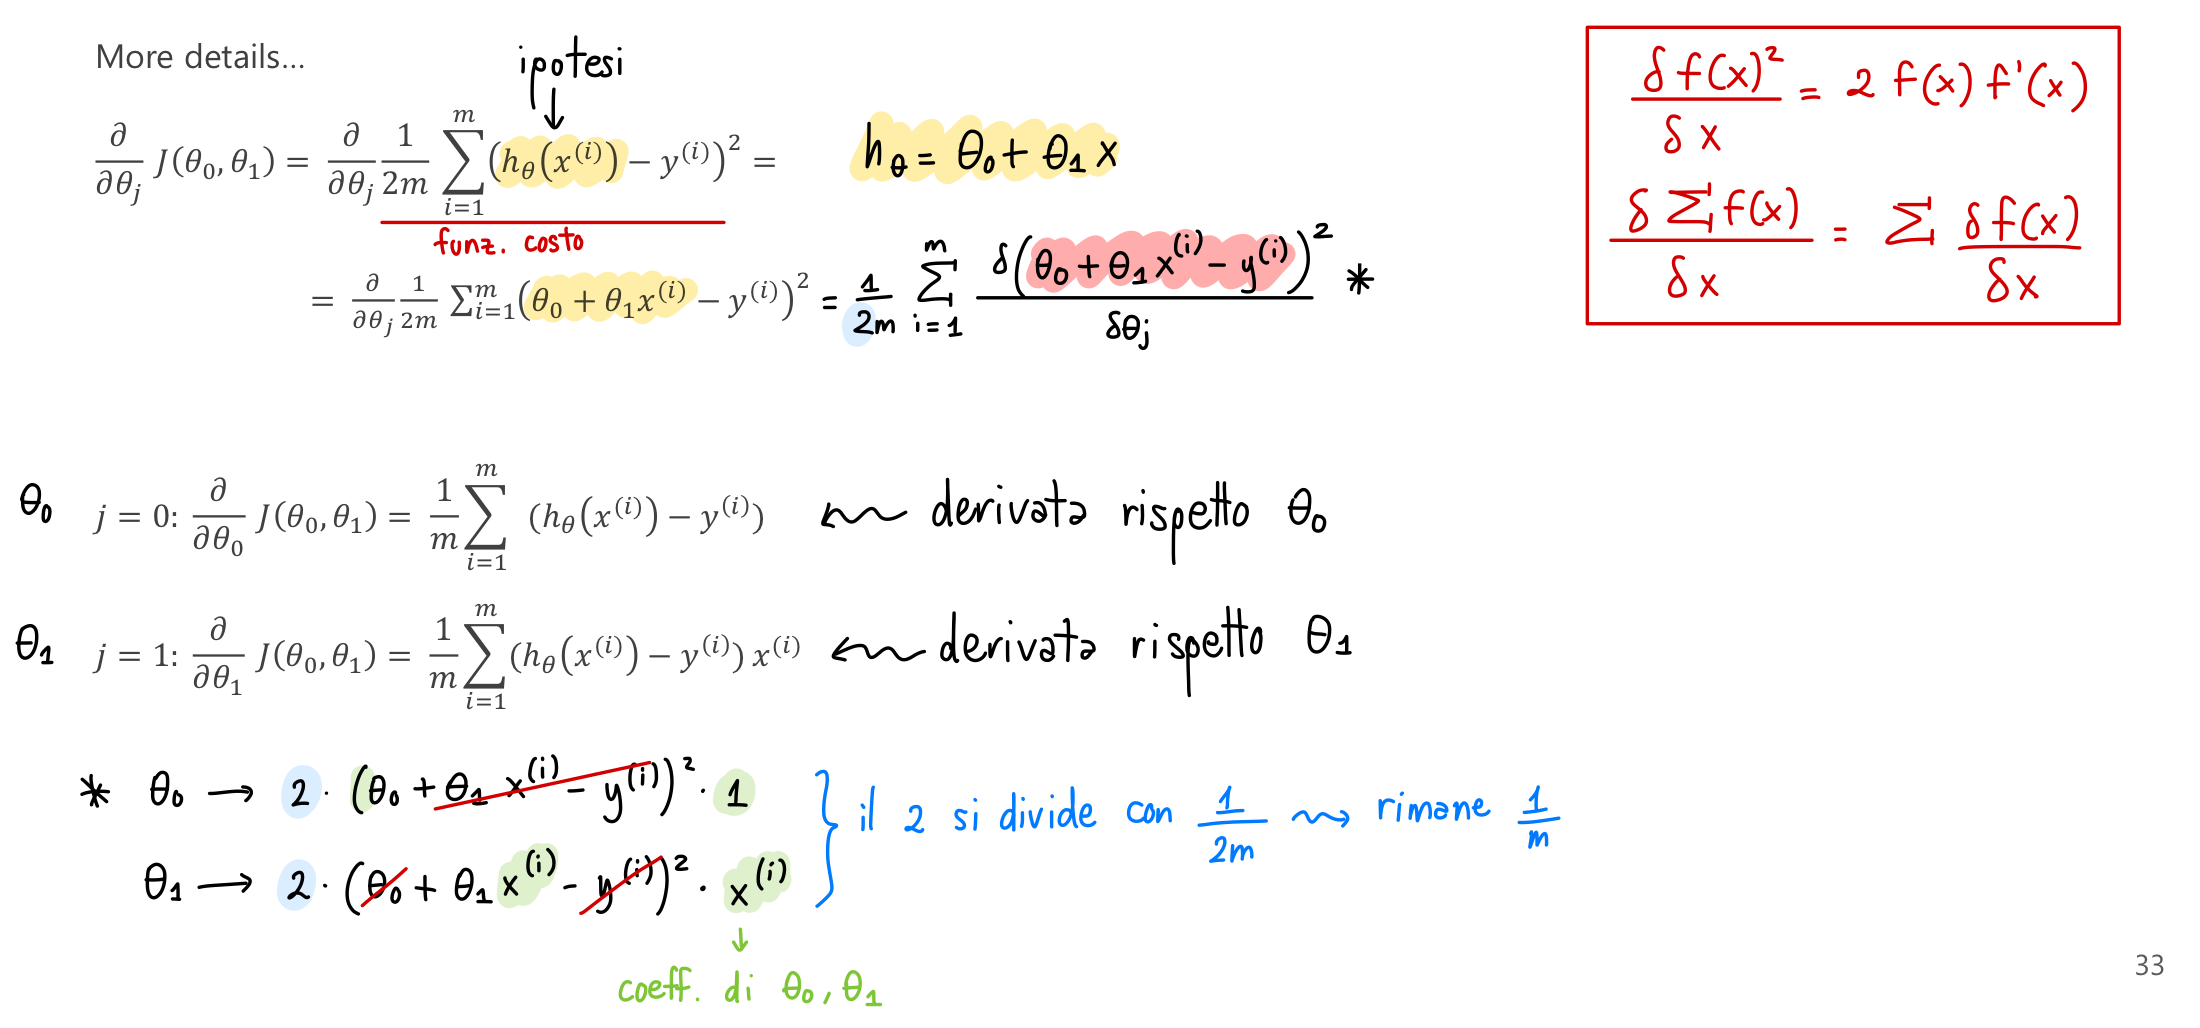 More details...
ipotesi
∂/∂θ_j J(θ_0, θ_1) = ∂/∂θ_j 1/2m ∑_{i=1}^{m} (h_θ(x^(i)) − y^(i))^2 =
h_θ = θ_0 + θ_1 x
funz. costo
= ∂/∂θ_j 1/2m ∑_{i=1}^{m} (θ_0 + θ_1 x^(i) − y^(i))^2 = 1/2m ∑_{i=1}^{m} δ(θ_0 + θ_1 x^(i) − y^(i))^2 / δθ_j *
δ f(x)^2 / δ x = 2 f(x) f'(x)
δ ∑ f(x) / δ x = ∑ δ f(x) / δ x
θ_0 j = 0: ∂/∂θ_0 J(θ_0, θ_1) = 1/m ∑_{i=1}^{m} (h_θ(x^(i)) − y^(i)) ← derivata rispetto θ_0
θ_1 j = 1: ∂/∂θ_1 J(θ_0, θ_1) = 1/m ∑_{i=1}^{m} (h_θ(x^(i)) − y^(i)) x^(i) ← derivata rispetto θ_1
* θ_0 → 2 · (θ_0 + θ_1 x^(i) − y^(i))^2 · 1
θ_1 → 2 · (θ_0 + θ_1 x^(i) − y^(i))^2 · x^(i)
} il 2 si divide con 1/2m ⇝ rimane 1/m
↓
coeff. di θ_0, θ_1
33